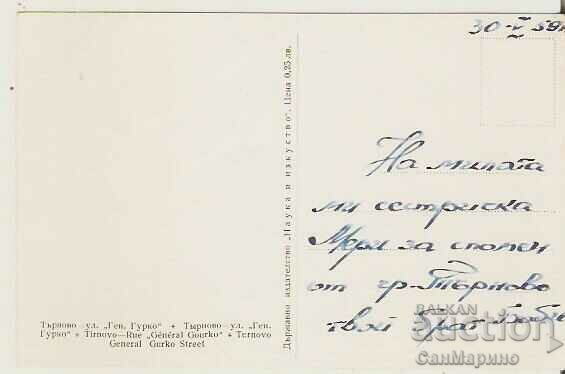 30-V 59
На милата
ми сестриска
Мери за спомен
от гр. Търново
твой брат
Държавно издателство „Наука и изкуство“. Цена 0,25 лв.
Търново — ул. „Ген. Гурко“ • Тырново — ул. „Ген.
Гурко“ • Tirnovo—Rue „Général Gourko“ • Turnovo
General Gurko Street
BALKAN
auction
СанМарино